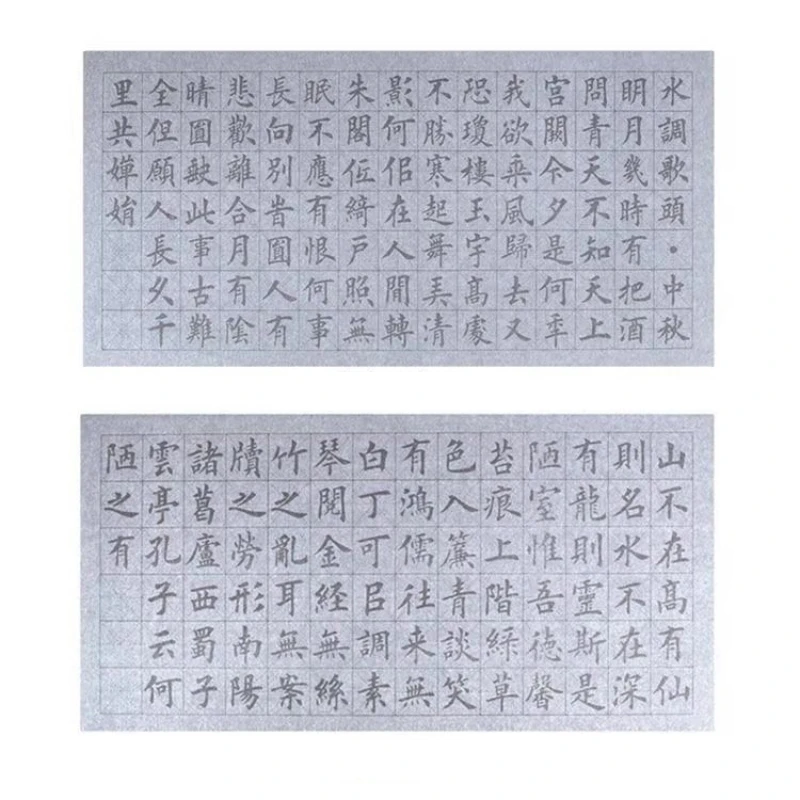 水調歌頭·中秋
明月幾時有把酒
問青天不知天上
宮闕今夕是何年
我欲乘風歸去又
恐瓊樓玉宇高處
不勝寒起舞弄清
影何佀在人間轉
朱閣低綺戶照無
眠不應有恨何事
長向別旹圓人有
悲歡離合月有陰
晴圓缺此事古難
全但願人長久千
里共嬋娟
山不在高有仙
則名水不在深
有龍則靈斯是
陋室惟吾德馨
苔痕上階綠草
色入簾青談笑
有鴻儒往来無
白丁可㠯調素
琴閱金経無絲
竹之亂耳無案
牘之勞形南陽
諸葛廬西蜀子
雲亭孔子云何
陋之有